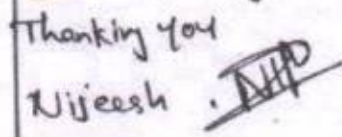 Thanking you
Nijeesh .